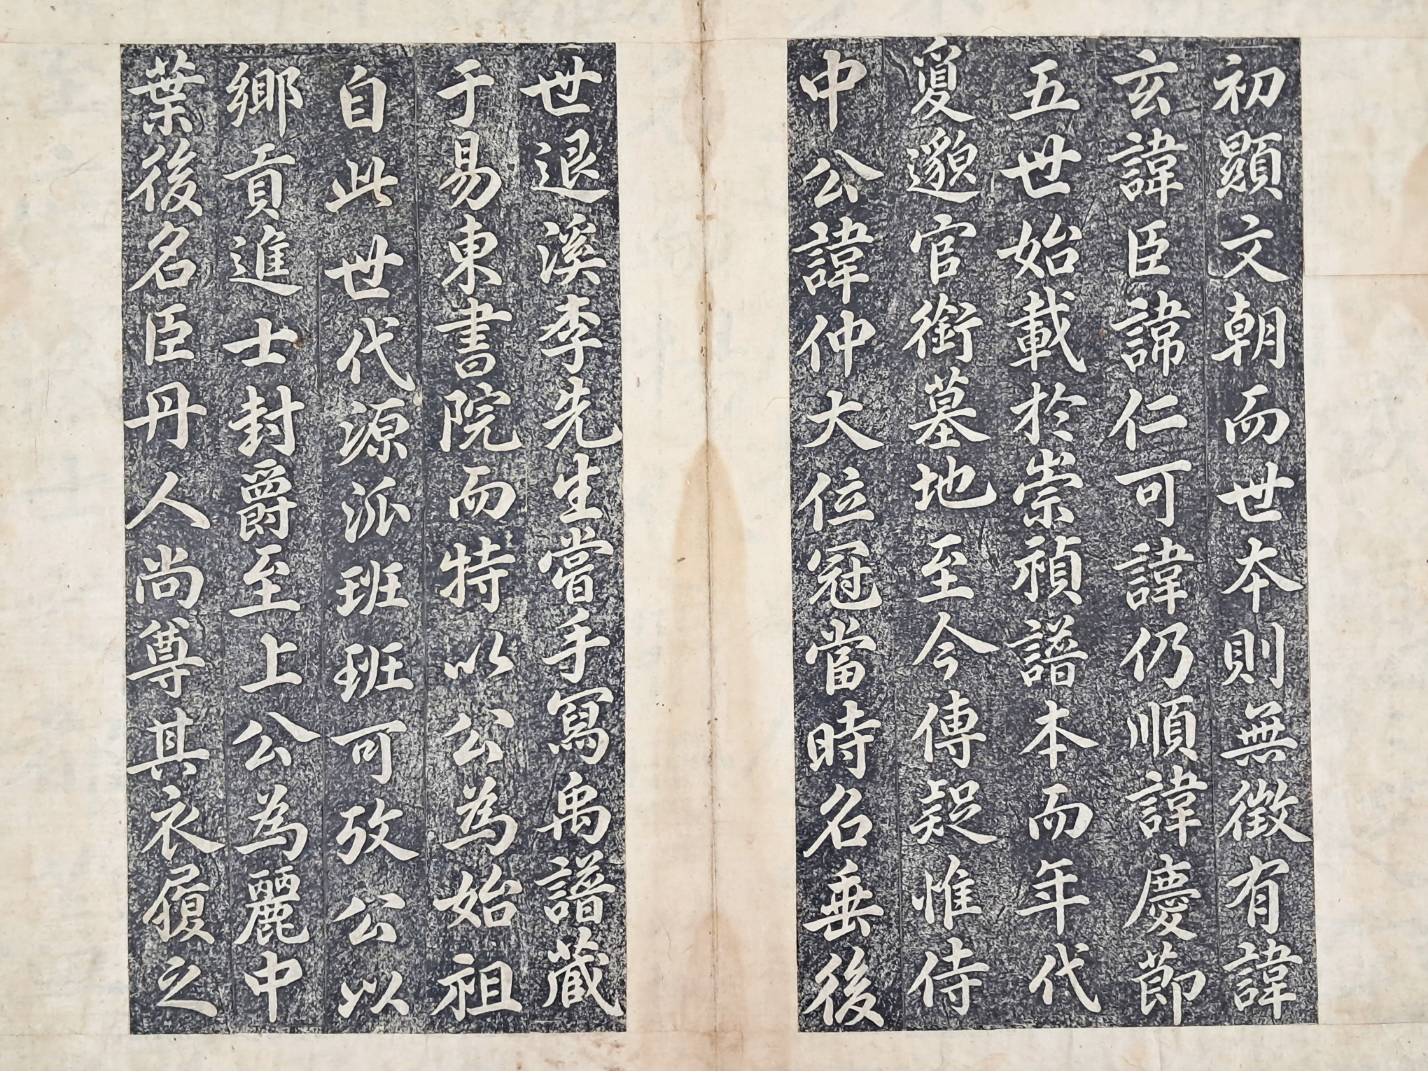 初顯文朝而世本則無徵有諱
玄諱臣諱仁可諱仍順諱慶節
五世始載於崇禎譜本而年代
敻邈官銜墓地至今傳疑惟侍
中公諱仲大位冠當時名垂後
世退溪李先生嘗手寫禹譜藏
于易東書院而特以公為始祖
自此世代源派班班可攷公以
鄉貢進士封爵至上公為麗中
葉後名臣丹人尚尊其衣履之